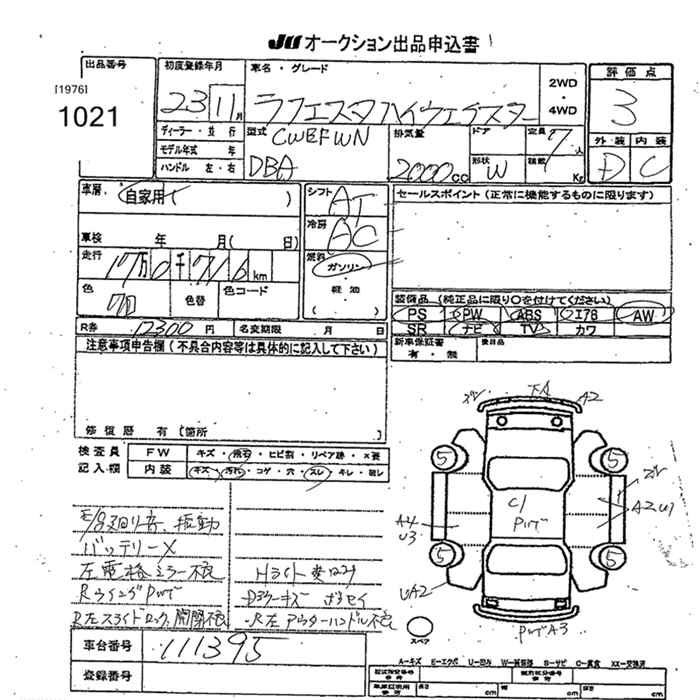 JU オークション出品申込書
出品番号
初度登録年月
車名・グレード
2WD
・
4WD
評価点
[1976]
1021
23 11月
ラフェスタハイウェイスター
3
外装 内装
D C
ディーラー・並行
モデル年式 年
ハンドル 左・右
型式 CWEFWN
DBA
排気量
2000cc
ドア
形状 W
定員 7人
積載 Kg
車歴 自家用( )
シフト AT
セールスポイント(正常に機能するものに限ります)
車検 年 月( 日)
冷房 AC
走行 17万0千716km
燃料 ガソリン
軽油
( )
色
色替
色コード
装備品(純正品に限り○を付けてください)
PS PW ABS エアB AW
SR ナビ TV カワ
R券 12300円
名変期限 月 日
新車保証書
有・無
後日品
注意事項申告欄(不具合内容等は具体的に記入して下さい)
修復歴 有(箇所 )
検査員
記入欄
FW キズ・飛石・ヒビ割・リペア跡・×要
内装 キズ・汚れ・コゲ・穴・スレ・キレ・凹レ
E/g廻り音、振動
バッテリーX
左電格ミラー不良
RウイングPWT
R左スライドロック、開閉不良
Hライト
-R左アウターハンドル不良
A2
5 5
A4
U3
A2 U1
5 5
UA2
A3
スペア
A=キズ E=エクボ U=凹ミ W=補修跡 S=サビ C=腐食 XX=交換済
車台番号 111395
登録番号
長さ cm
cm
cm